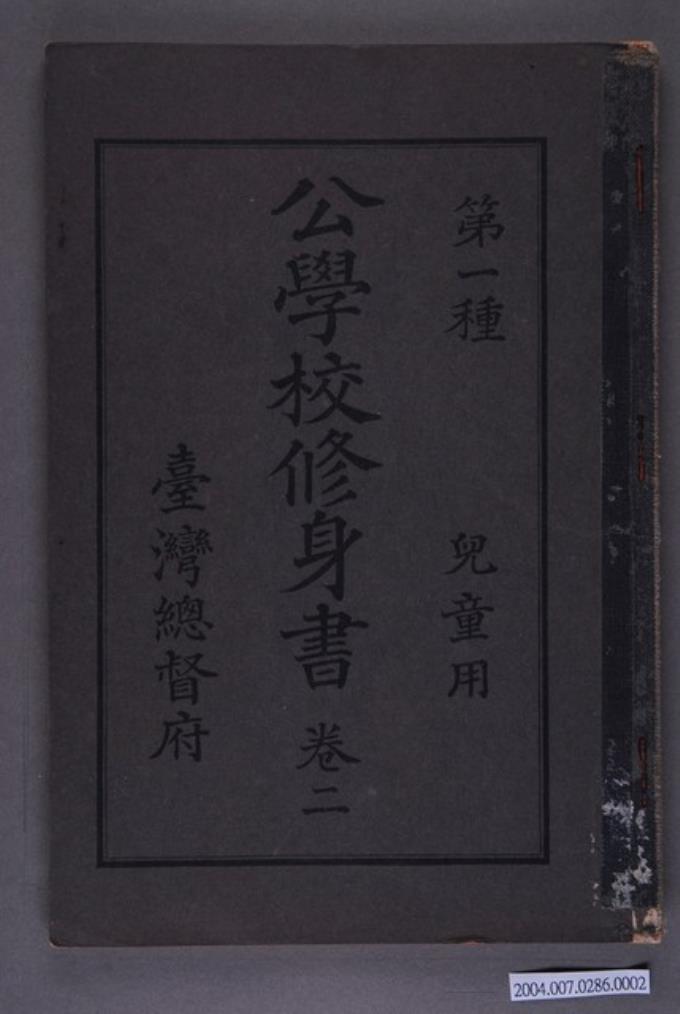 第一種 兒童用
公學校修身書 卷二
臺灣總督府
2004.007.0286.0002